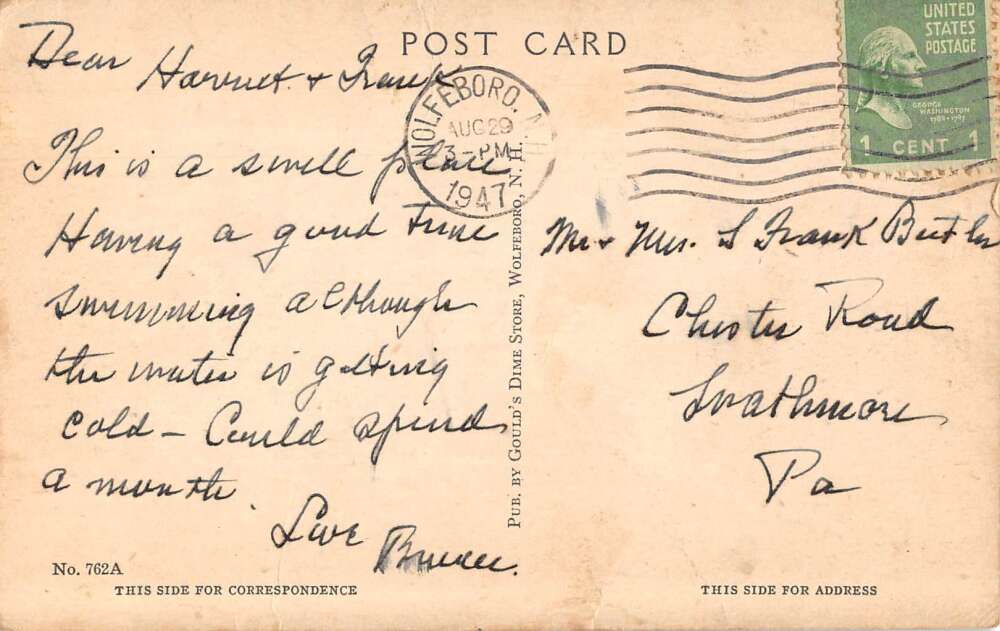 POST CARD
Dear Harriet + Frank
This is a swell place
Having a good time
swimming although
the water is getting
cold - Could spend
a month.
Love
No. 762A
THIS SIDE FOR CORRESPONDENCE
PUB. BY GOULD'S DIME STORE, WOLFEBORO, N. H.
WOLFEBORO, N.H.
AUG 29
3-PM
1947
UNITED
STATES
POSTAGE
GEORGE
WASHINGTON
1789-1797
1 CENT 1
Mr + Mrs. S Frank Butler
Chester Road
Swathmore
Pa
THIS SIDE FOR ADDRESS